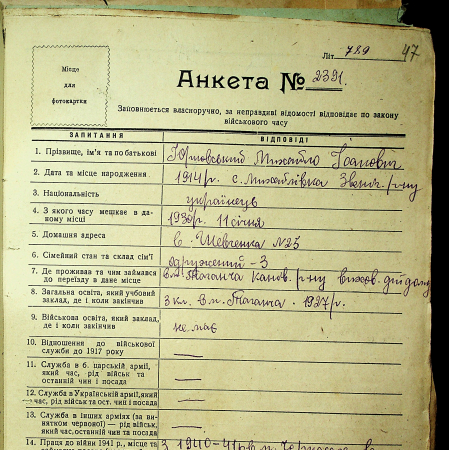 Літ. 789 47
Місце
для
фотокартки
Анкета № 2391.
Заповнюється власноручно, за неправдиві відомості відповідає по закону
військового часу
ЗАПИТАННЯ ВІДПОВІДІ
1. Прізвище, ім'я та по батькові Михайло Іванович
2. Дата та місце народження 1914 р. с. Михайлівка Звениг. р-ну
3. Національність українець
4. З якого часу мешкає в да-
ному місці 1930 р. 11 січня
5. Домашня адреса в. Шевченка №25
6. Сімейний стан та склад сім'ї одружений – 3
7. Де проживав та чим займався
до переїзду в дане місце Таганча канев. р-ну вихов. дитдому
8. Загальна освіта, який учбовий
заклад, де і коли закінчив 3 кл. в м. Таганча. 1927 р.
9. Військова освіта, який заклад,
де і коли закінчив немає
10. Відношення до військової
служби до 1917 року —
11. Служба в б. царській армії,
який час, рід військ та
останній чин і посада —
12. Служба в Українській армії, який
час, рід військ та ост. чин і посада —
13. Служба в інших арміях (за ви-
нятком червоної) — рід військ,
який час, останній чин та посада —
14. Праця до війни 1941 р., місце та З 1940-41 р.